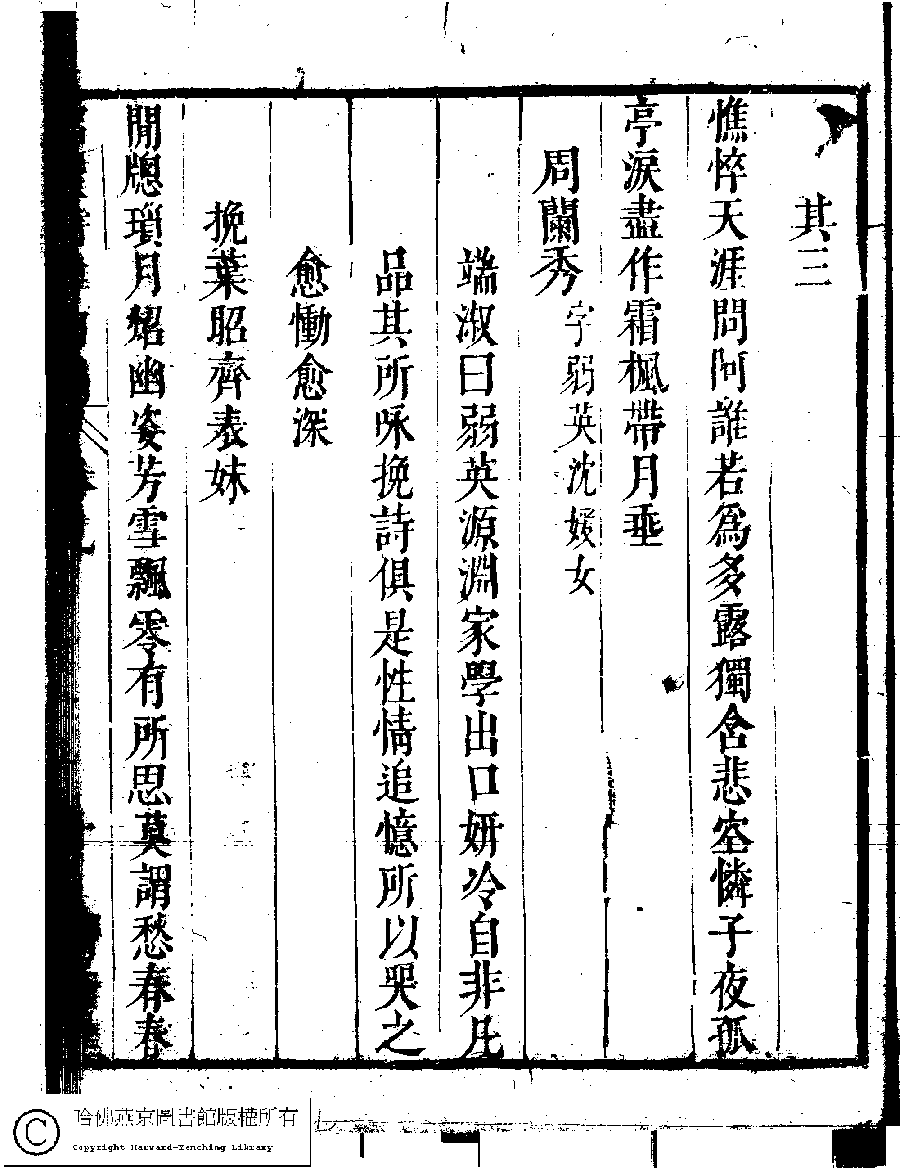 其三
憔悴天涯問阿誰若爲多露獨含悲空憐子夜孤
亭淚盡作霜楓帶月垂
周蘭秀字弱英沈媛女
端淑曰弱英源淵家學出口妍冷自非凡
品其所咏挽詩俱是性情追憶所以哭之
愈慟愈深
挽葉昭齊表妹
閒牕瑣月炤幽姿芳雪飄零有所思莫謂愁春春
哈佛燕京圖書館版權所有
Copyright Harvard-Yenching Library